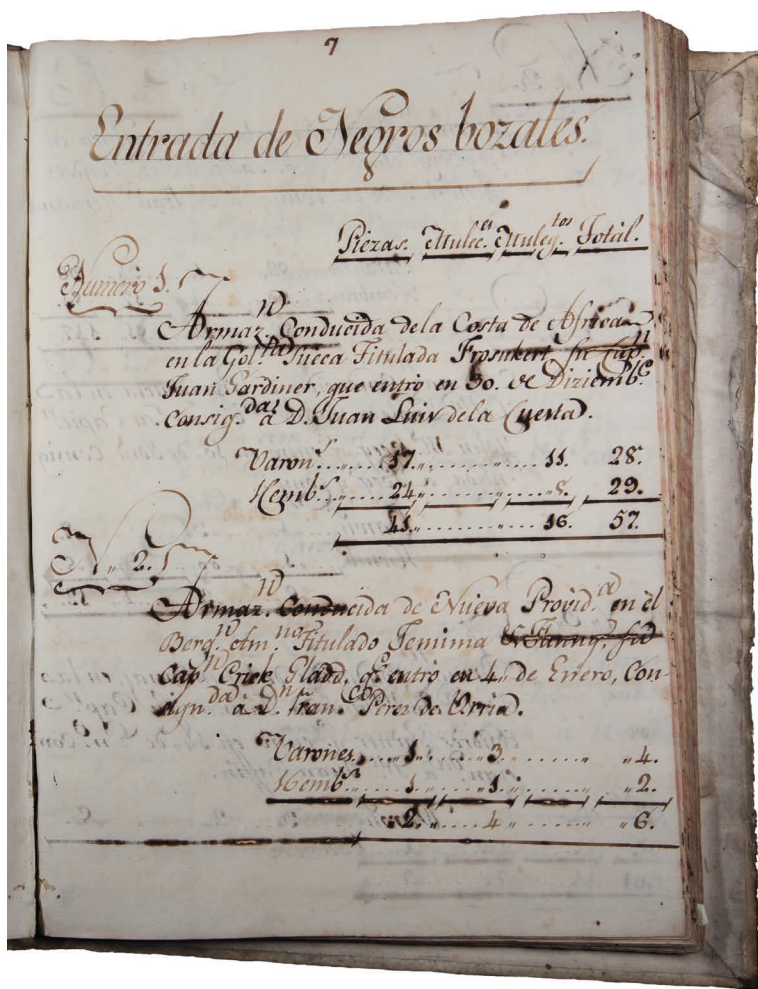 7
Entrada de Negros bozales.
Piezas. Mulec.es Muleq.tos Total.
Numero 1.
Armaz.n Conducida de la Costa de Africa
en la Gol.ta Sueca Titulada Frosnkert, su Cap.n
Juan Gardiner, que entró en 30. de Diziemb.e
Consig.da a D. Juan Luis de la Cuesta.
Varon.s 17. 11. 28.
Hemb.s 24 8. 29.
41. 16. 57.
N. 2.
Armaz.n Conducida de Nueva Provid.a en el
Berg.n Am.no Titulado Jemima & Fanny, su
Cap.n Crick Gladd, q.e entró en 4, de Enero, Con-
sign.da a D.n Fran.co Perez de Urria.
Varones 1. 3. 4.
Hemb.s 1. 1. 2.
2. 4. 6.